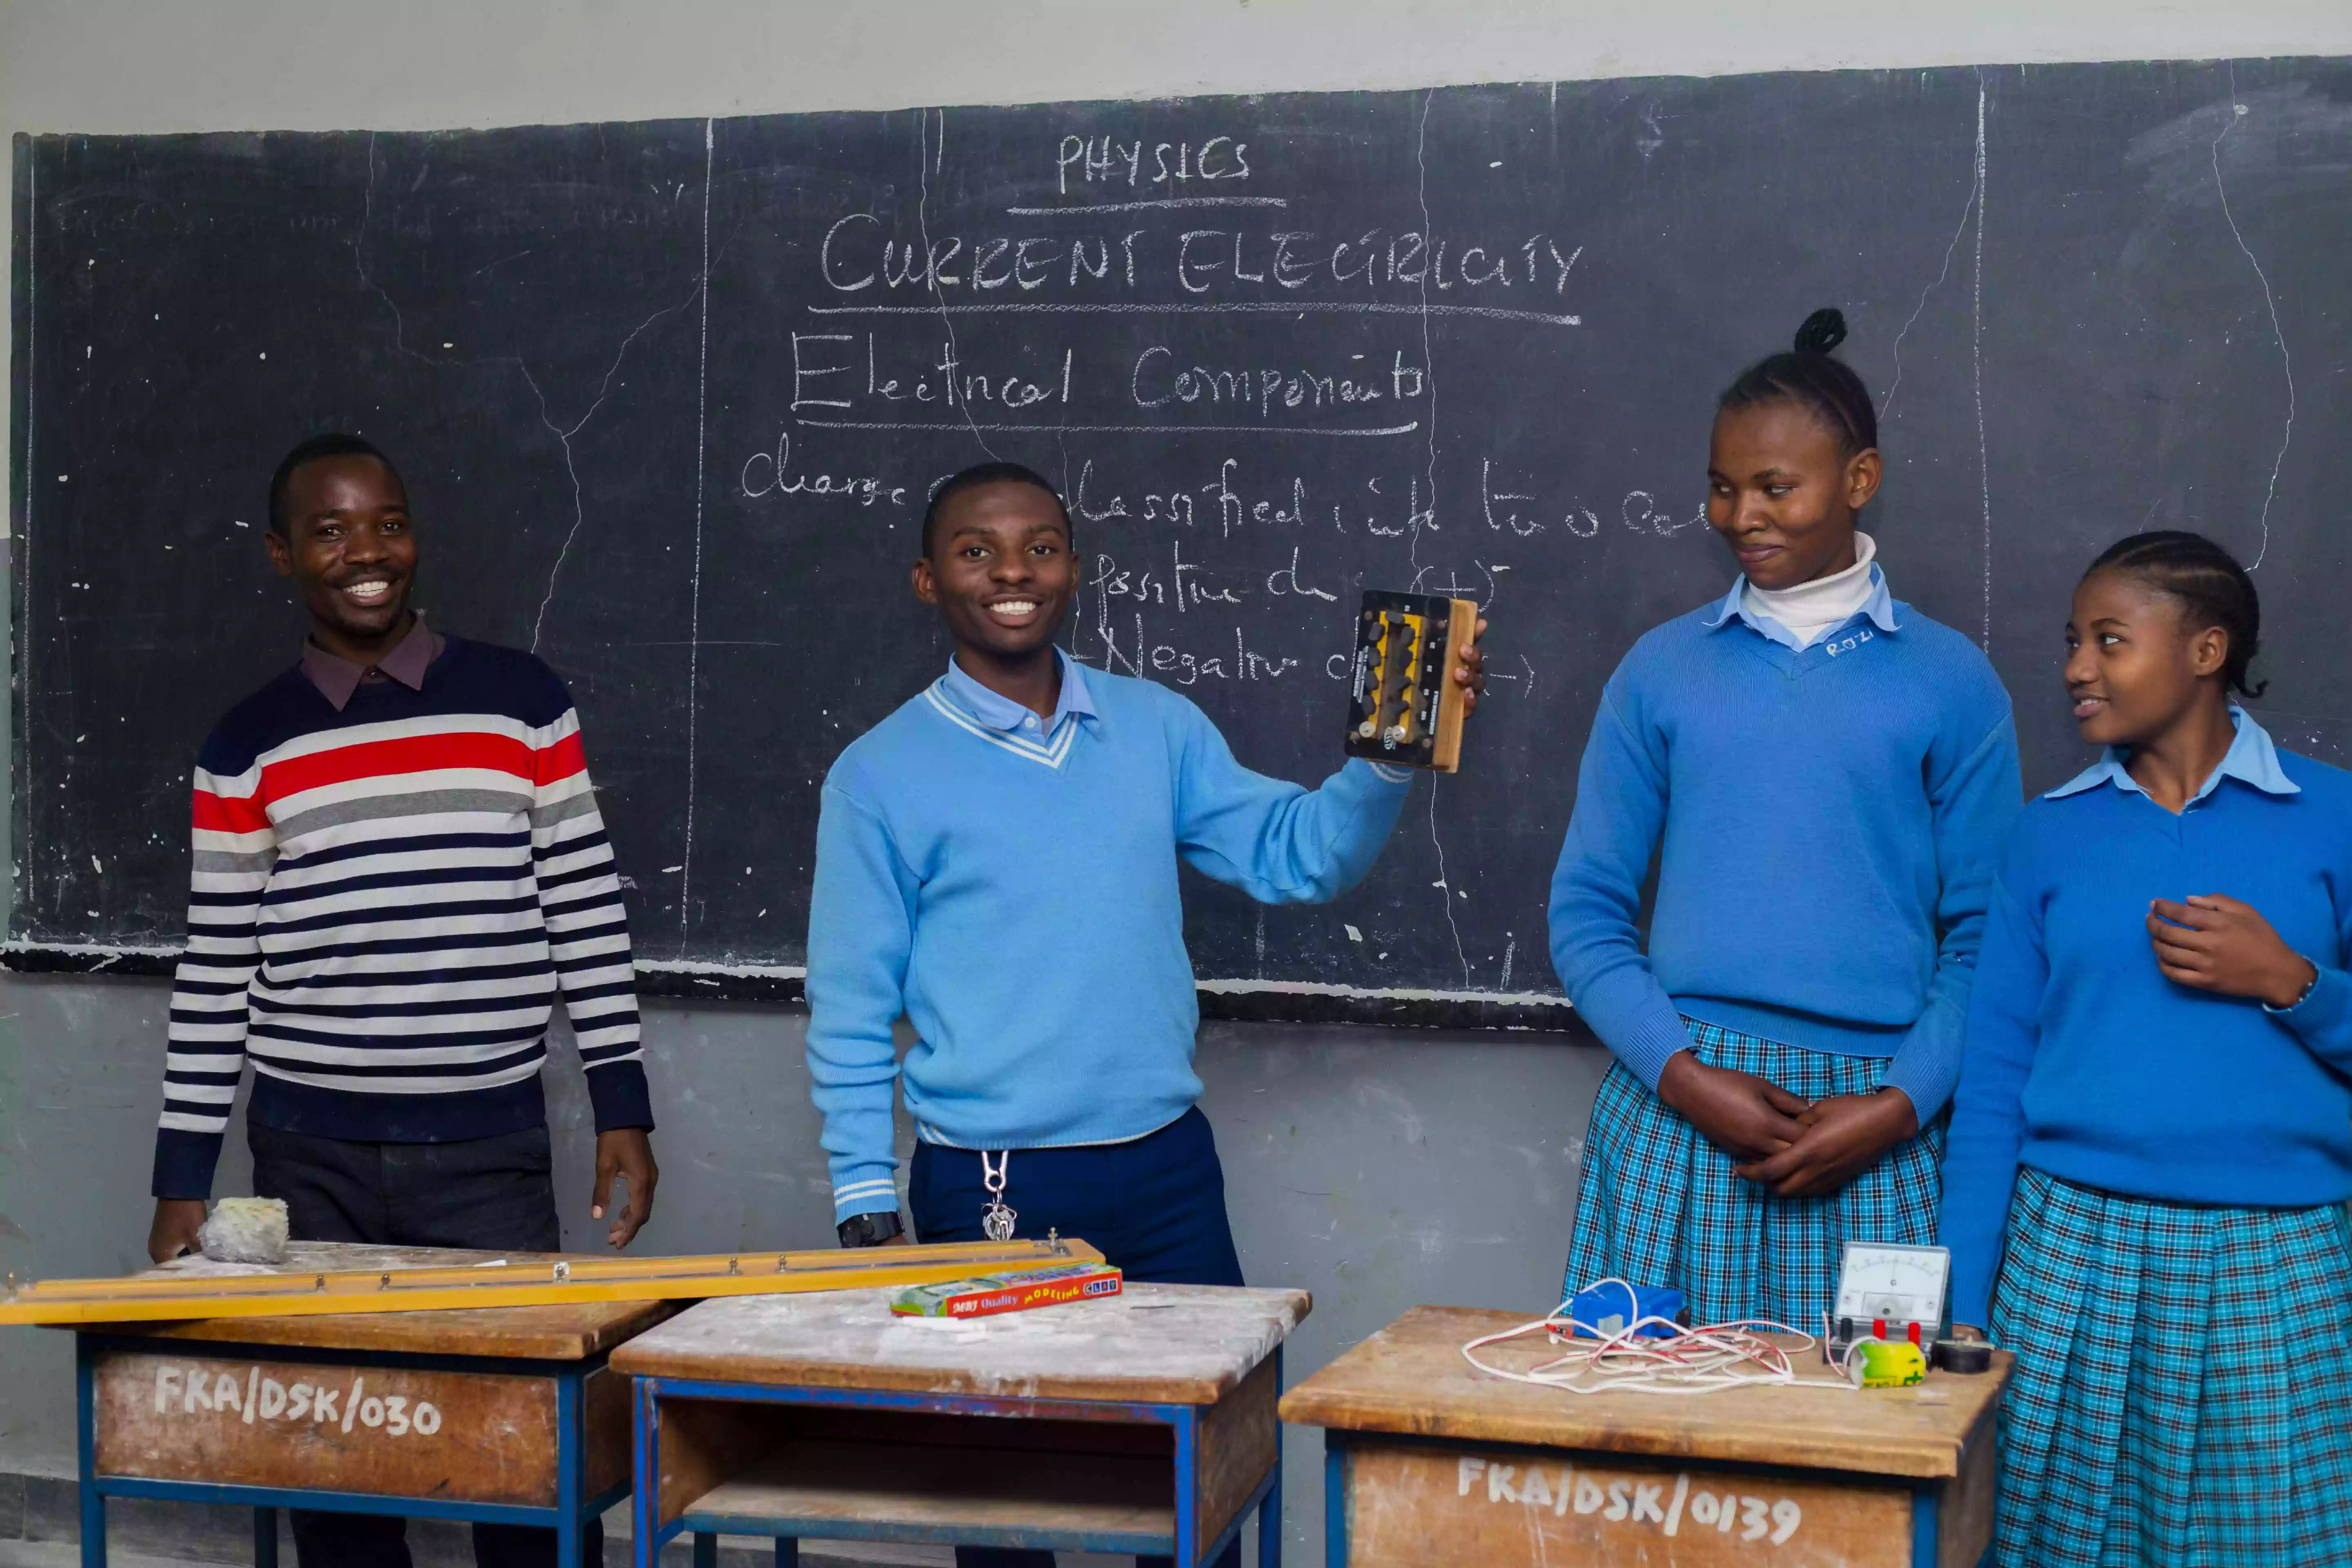 PHYSICS
CURRENT ELECTRICITY
Electrical Components
charge classified into two
positive (+)
- Negative (-)
ROZI
MBJ Quality MODELING CLAY
G
FKA/DSK/030
FKA/DSK/0139